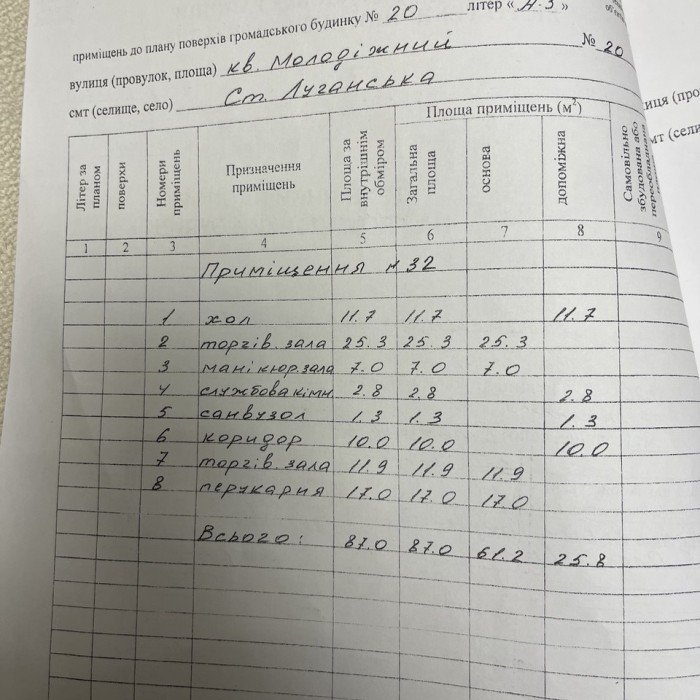 приміщень до плану поверхів громадського будинку № 20 літер « А-3 »
вулиця (провулок, площа) кв. Молодіжний № 20
смт (селище, село) Ст. Луганська
иця (про
мт (сели
Літер за планом поверхи Номери приміщень Призначення приміщень Площа за внутрішнім обміром Площа приміщень (м²) Загальна площа основа допоміжна Самовільно збудована або
1 2 3 4 5 6 7 8 9
Приміщення № 32
1 хол 11.7 11.7 11.7
2 торгів. зала 25.3 25.3 25.3
3 манікюр. зала 7.0 7.0 7.0
4 службова кімн. 2.8 2.8 2.8
5 санвузол 1.3 1.3 1.3
6 коридор 10.0 10.0 10.0
7 торгів. зала 11.9 11.9 11.9
8 перукарня 17.0 17.0 17.0
Всього: 87.0 87.0 61.2 25.8